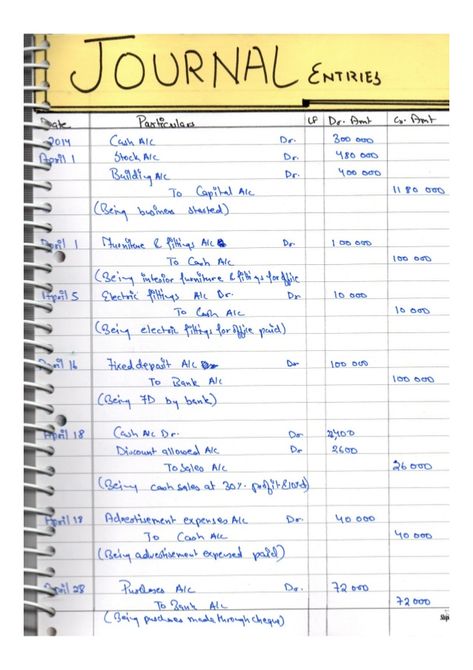 JOURNAL ENTRIES
Date Particulars LF Dr. Amt Cr. Amt
2014 Cash A/c Dr. 300 000
April 1 Stock A/c Dr. 480 000
Building A/c Dr. 400 000
To Capital A/c 11 80 000
(Being business started)
April 1 Furniture & fittings A/c Dr 100 000
To Cash A/c 100 000
(Being interior furniture & fittings for office
April 5 Electric fittings A/c Dr. Dr 10 000
To Cash A/c 10 000
(Being electric fittings for office paid)
April 16 Fixed deposit A/c Dr 100 000
To Bank A/c 100 000
(Being FD by bank)
April 18 Cash A/c Dr. Dr 2400
Discount allowed A/c Dr 2600
To Sales A/c 26 000
(Being cash sales at 30% profit &
April 18 Advertisement expenses A/c Dr. 40 000
To Cash A/c 40 000
(Being advertisement expensed paid)
April 28 Purchases A/c Dr. 72 000
To Bank A/c 72 000
(Being purchases made through cheque)